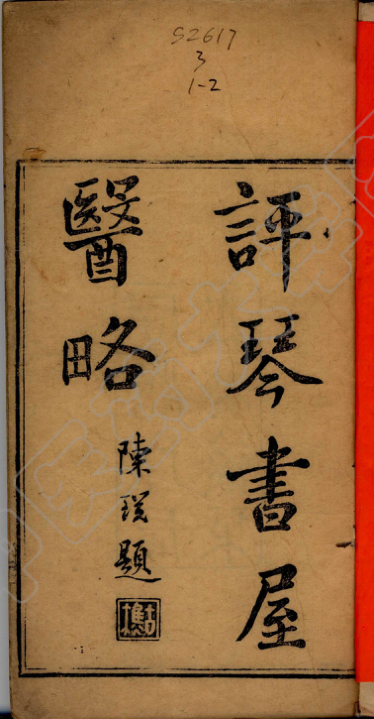 S2617
3
1-2
評琴書屋
醫略
陳璞題
古樵